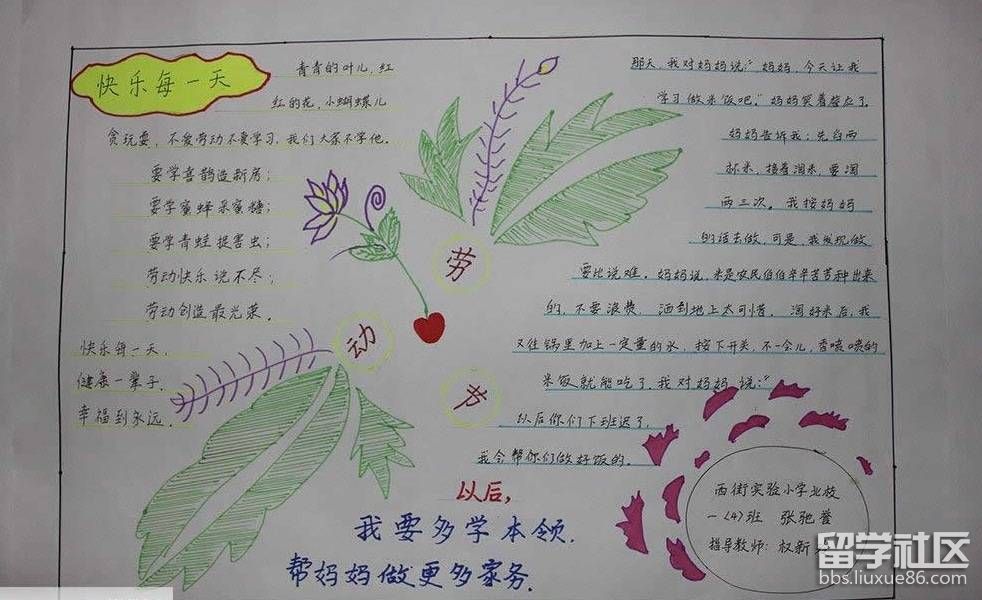 快乐每一天
青青的叶儿,红
红的花,小蝴蝶儿
贪玩耍,不爱劳动不爱学习,我们大家不学他。
要学喜鹊造新房;
要学蜜蜂采蜜糖;
要学青蛙捉害虫;
劳动快乐说不尽;
劳动创造最光荣。
快乐每一天,
健康一辈子,
幸福到永远。
劳
动
节
那天,我对妈妈说:“妈妈,今天让我
学习做米饭吧。”妈妈笑着答应了。
妈妈告诉我:先舀两
杯米,接着淘米,要淘
两三次。我按妈妈
的话去做,可是,我发现做
要比说难。妈妈说,米是农民伯伯辛辛苦苦种出来
的,不要浪费,洒到地上太可惜。淘好米后,我
又往锅里加上一定量的水,按下开关,不一会儿,香喷喷的
米饭就能吃了。我对妈妈说:“
以后你们下班迟了,
我会帮你们做好饭的。
以后,
我要多学本领.
帮妈妈做更多家务.
西街实验小学北校
一(4)班 张驰誉
指导教师:权新
留学社区
bbs.liuxue86.com